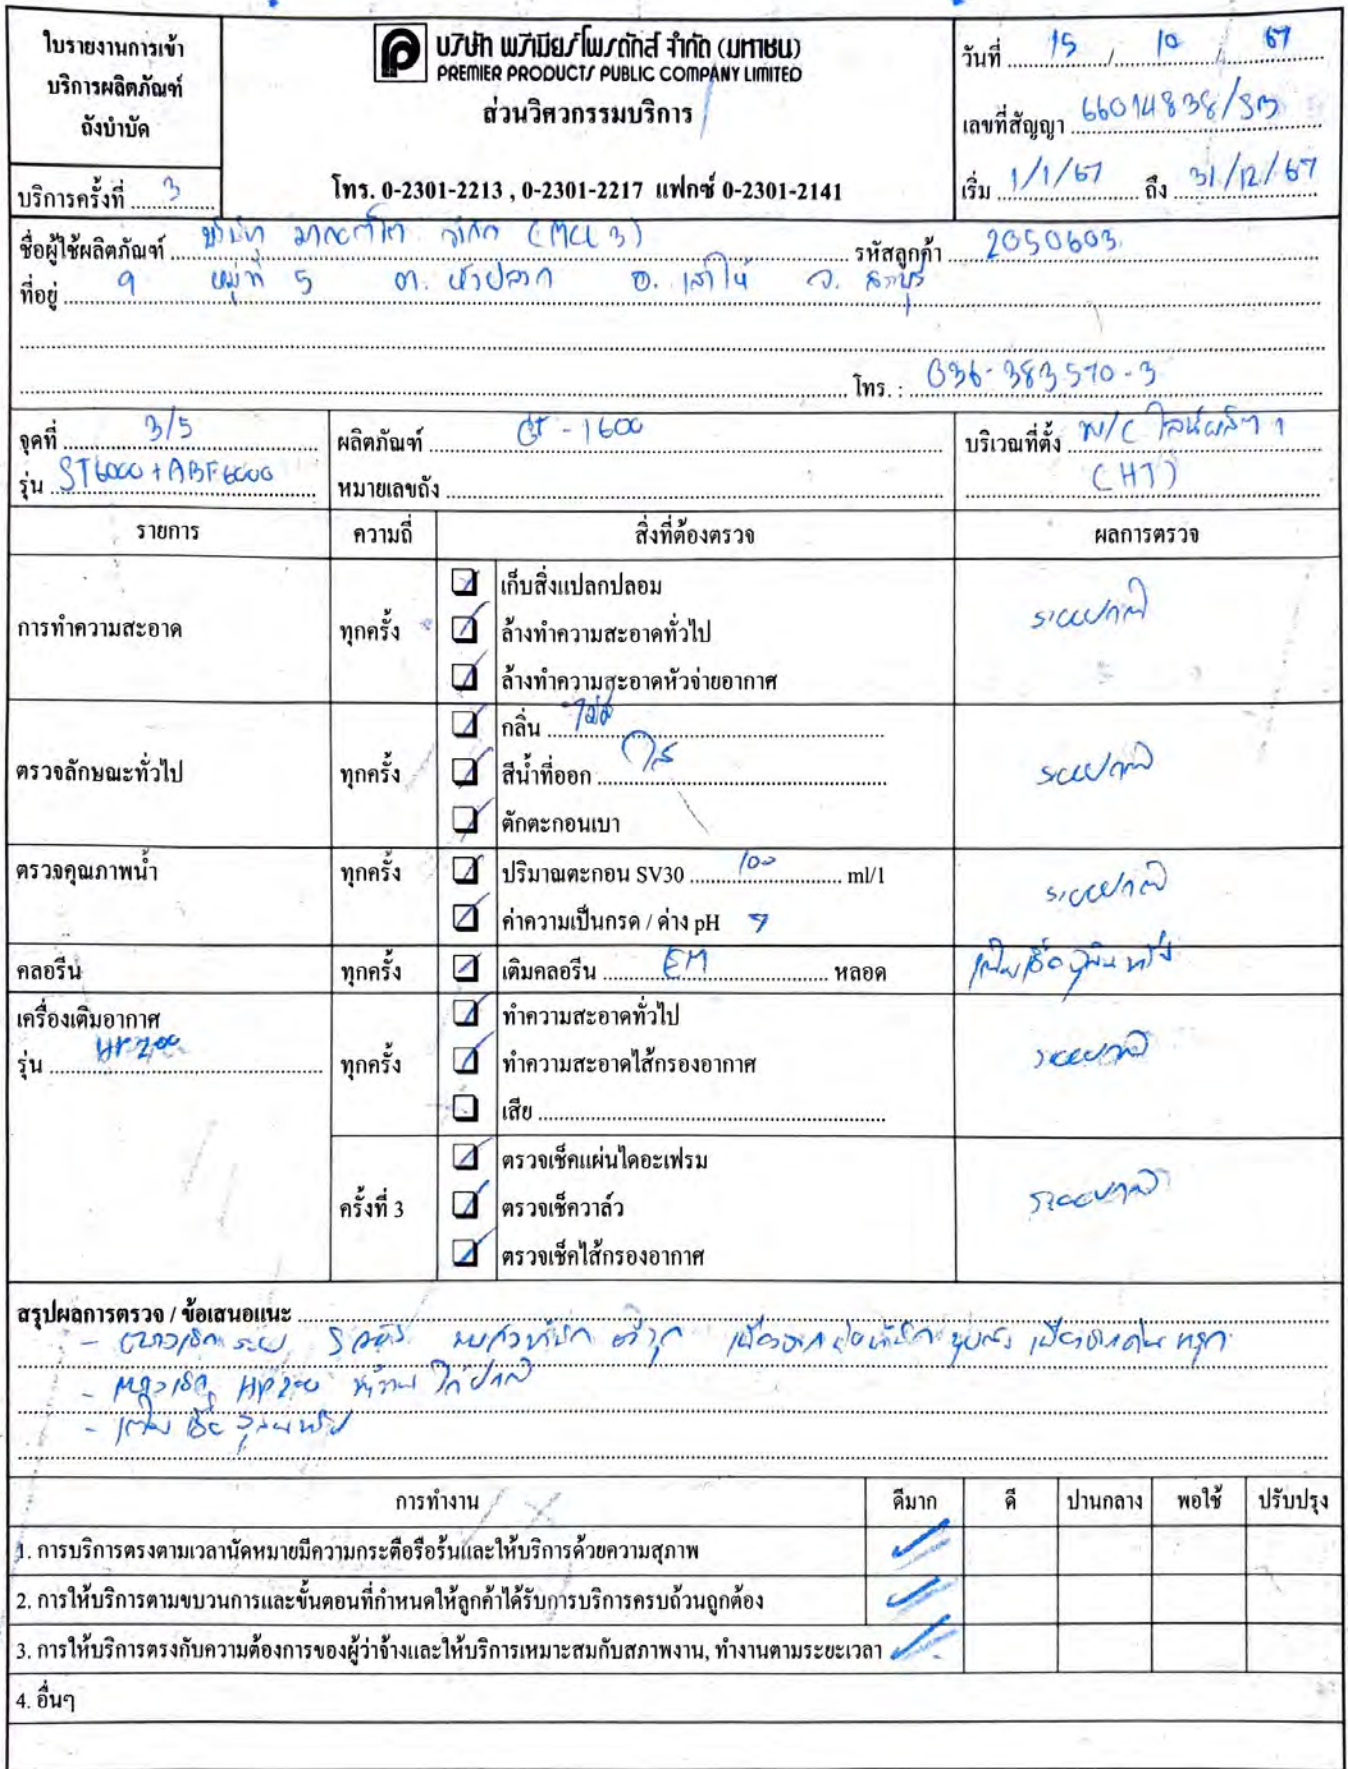 ใบรายงานการเข้า
บริการผลิตภัณฑ์
ถังบำบัด
บริการครั้งที่ 3
บริษัท พรีเมียร์ โพรดักส์ จำกัด (มหาชน)
PREMIER PRODUCTS PUBLIC COMPANY LIMITED
ส่วนวิศวกรรมบริการ
โทร. 0-2301-2213 , 0-2301-2217 แฟกซ์ 0-2301-2141
วันที่ 15 / 10 / 67
เลขที่สัญญา 66014838/SM
เริ่ม 1/1/67 ถึง 31/12/67
ชื่อผู้ใช้ผลิตภัณฑ์ บริษัท มากอตโต จำกัด (MCL 3) รหัสลูกค้า 2050603
ที่อยู่ 9 หมู่ที่ 5 ต. หัวปลวก อ. เสาไห้ จ. สระบุรี
โทร. : 036-383570-3
จุดที่ 3/5
รุ่น ST6000 + ABF6000
ผลิตภัณฑ์ GT-1600
หมายเลขถัง
บริเวณที่ตั้ง W/C ไลน์ผลิต 1
(HT)
รายการ ความถี่ สิ่งที่ต้องตรวจ ผลการตรวจ
การทำความสะอาด ทุกครั้ง
เก็บสิ่งแปลกปลอม
ล้างทำความสะอาดทั่วไป
ล้างทำความสะอาดหัวจ่ายอากาศ
ระบบปกติ
ตรวจลักษณะทั่วไป ทุกครั้ง
กลิ่น ไม่มี
สีน้ำที่ออก ใส
ตักตะกอนเบา
ระบบปกติ
ตรวจคุณภาพน้ำ ทุกครั้ง
ปริมาณตะกอน SV30 100 ml/1
ค่าความเป็นกรด / ด่าง pH 7
ระบบปกติ
คลอรีน ทุกครั้ง เติมคลอรีน EM หลอด เติมเชื้อจุลินทรีย์
เครื่องเติมอากาศ
รุ่น HP200 ทุกครั้ง
ทำความสะอาดทั่วไป
ทำความสะอาดไส้กรองอากาศ
เสีย
ระบบปกติ
ครั้งที่ 3
ตรวจเช็คแผ่นไดอะเฟรม
ตรวจเช็ควาล์ว
ตรวจเช็คไส้กรองอากาศ
ระบบปกติ
สรุปผลการตรวจ / ข้อเสนอแนะ
- ตรวจเช็คระบบ
- ตรวจเช็ค HP200 ทำงานได้ปกติ
- เติมเชื้อจุลินทรีย์
การทำงาน ดีมาก ดี ปานกลาง พอใช้ ปรับปรุง
1. การบริการตรงตามเวลานัดหมายมีความกระตือรือร้นและให้บริการด้วยความสุภาพ
2. การให้บริการตามขบวนการและขั้นตอนที่กำหนดให้ลูกค้าได้รับการบริการครบถ้วนถูกต้อง
3. การให้บริการตรงกับความต้องการของผู้ว่าจ้างและให้บริการเหมาะสมกับสภาพงาน, ทำงานตามระยะเวลา
4. อื่นๆ